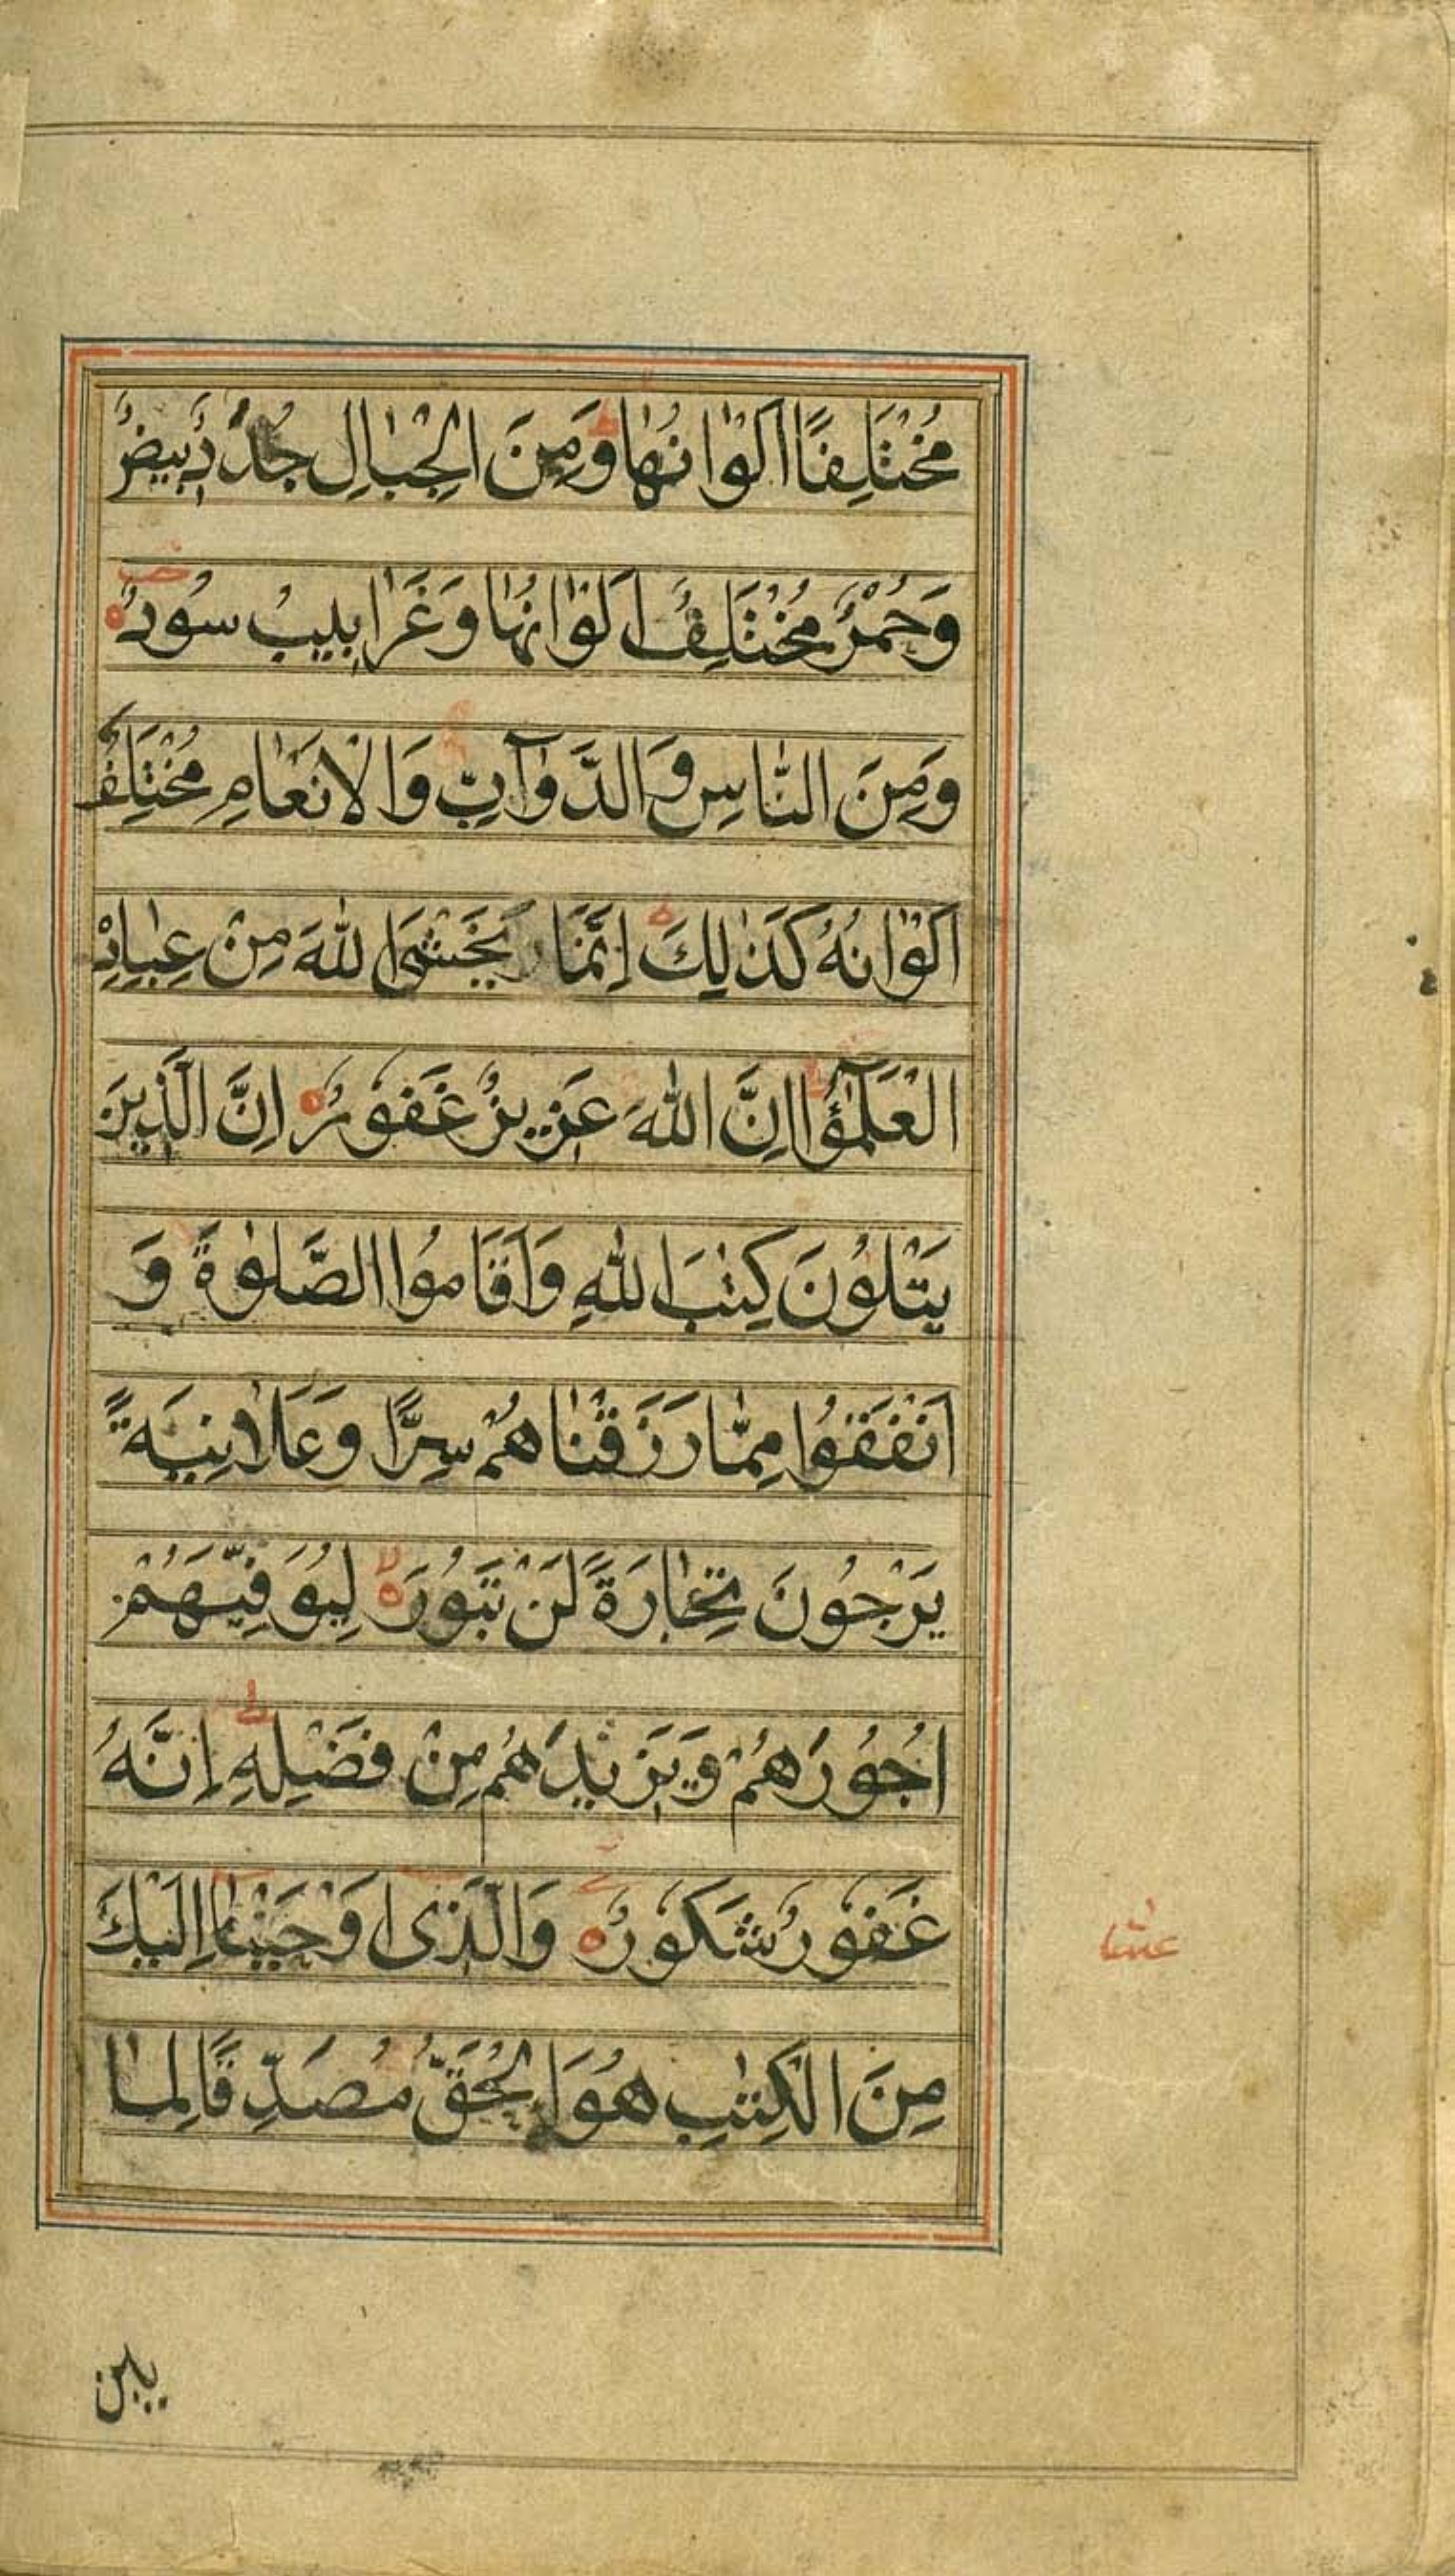 مُخْتَلِفًا اَلْوَانُهَا وَمِنَ الْجِبَالِ جُدَدٌ بِيضٌ
وَحُمْرٌ مُخْتَلِفٌ اَلْوَانُهَا وَغَرَابِيبُ سُودٌ ه
وَمِنَ النَّاسِ وَالدَّوَآبِّ وَالْاَنْعَامِ مُخْتَلِفٌ
اَلْوَانُهُ كَذٰلِكَ اِنَّمَا يَخْشَى اللهَ مِنْ عِبَادِهِ
الْعُلَمٰٓؤُا اِنَّ اللهَ عَزِيزٌ غَفُورٌ ه اِنَّ الَّذِينَ
يَتْلُونَ كِتٰبَ اللهِ وَاَقَامُوا الصَّلٰوةَ وَ
اَنْفَقُوا مِمَّا رَزَقْنَاهُمْ سِرًّا وَعَلَانِيَةً
يَرْجُونَ تِجَارَةً لَنْ تَبُورَ ه لِيُوَفِّيَهُمْ
اُجُورَهُمْ وَيَزِيدَهُمْ مِنْ فَضْلِهِ اِنَّهُ
غَفُورٌ شَكُورٌ ه وَالَّذِى اَوْحَيْنَا اِلَيْكَ
مِنَ الْكِتٰبِ هُوَ الْحَقُّ مُصَدِّقًا لِمَا
بين